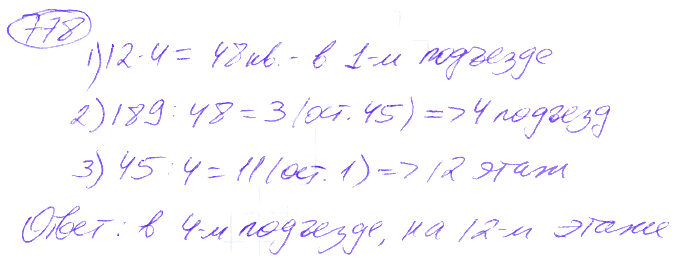 778
1) 12·4 = 48 кв. - в 1-м подъезде
2) 189 : 48 = 3 (ост. 45) => 4 подъезд
3) 45 : 4 = 11 (ост. 1) => 12 этаж
Ответ: в 4-м подъезде, на 12-м этаже